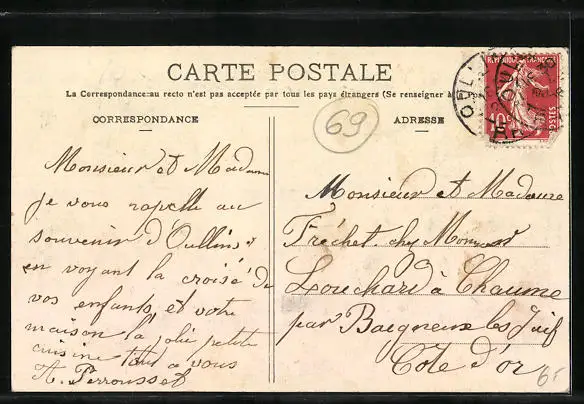 CARTE POSTALE
La Correspondance au recto n'est pas acceptée par tous les pays étrangers (Se renseigner à
CORRESPONDANCE
ADRESSE
69
REPUBLIQUE FRANÇAISE
10
POSTES
Monsieur et Madame
je vous rapelle au
souvenir d'Oullins
en voyant la croisé de
vos enfants, et votre
maison la jolie petite
cuisine tout a vous
A. Perrousset
Monsieur et Madame
Fréchet chez Monsieur
Louchard à Chaume
par Baigneux les Juif
Côte d'or